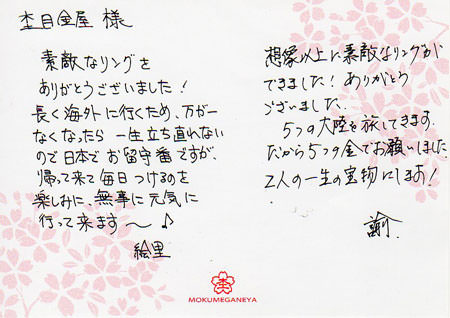 杢目金屋 様
素敵なリングを
ありがとうございました！
長く海外に行くため、万が一
なくなったら 一生立ち直れない
ので日本で お留守番ですが、
帰って来て毎日つけるのを
楽しみに、無事に元気に
行って来ます〜♪
絵里
想像以上に素敵なリングが
できました！ありがとう
ございました.
5つの大陸を旅してきます.
だから5つの金でお願いしました
2人の一生の宝物にします！
諭.
MOKUMEGANEYA